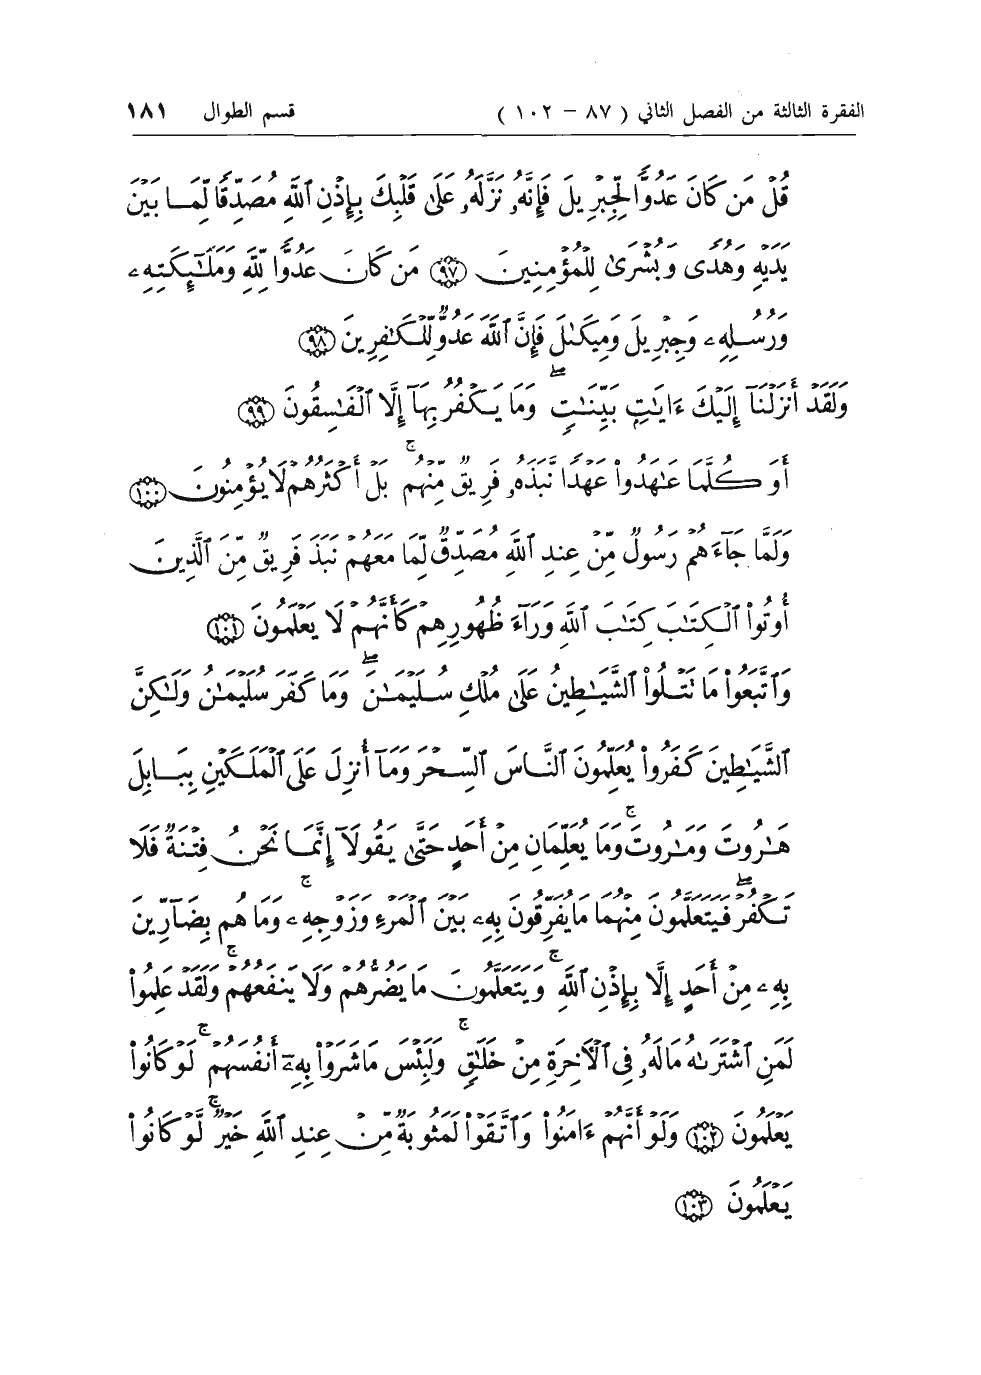 الفقرة الثالثة من الفصل الثاني ( ٨٧ – ١٠٢ ) قسم الطوال ١٨١
قُلْ مَن كَانَ عَدُوًّا لِّجِبْرِيلَ فَإِنَّهُۥ نَزَّلَهُۥ عَلَىٰ قَلْبِكَ بِإِذْنِ ٱللَّهِ مُصَدِّقًا لِّمَا بَيْنَ
يَدَيْهِ وَهُدًى وَبُشْرَىٰ لِلْمُؤْمِنِينَ ﴿٩٧﴾ مَن كَانَ عَدُوًّا لِّلَّهِ وَمَلَٰٓئِكَتِهِۦ
وَرُسُلِهِۦ وَجِبْرِيلَ وَمِيكَىٰلَ فَإِنَّ ٱللَّهَ عَدُوٌّ لِّلْكَٰفِرِينَ ﴿٩٨﴾
وَلَقَدْ أَنزَلْنَآ إِلَيْكَ ءَايَٰتٍۭ بَيِّنَٰتٍ ۖ وَمَا يَكْفُرُ بِهَآ إِلَّا ٱلْفَٰسِقُونَ ﴿٩٩﴾
أَوَكُلَّمَا عَٰهَدُوا۟ عَهْدًا نَّبَذَهُۥ فَرِيقٌ مِّنْهُم ۚ بَلْ أَكْثَرُهُمْ لَا يُؤْمِنُونَ ﴿١٠٠﴾
وَلَمَّا جَآءَهُمْ رَسُولٌ مِّنْ عِندِ ٱللَّهِ مُصَدِّقٌ لِّمَا مَعَهُمْ نَبَذَ فَرِيقٌ مِّنَ ٱلَّذِينَ
أُوتُوا۟ ٱلْكِتَٰبَ كِتَٰبَ ٱللَّهِ وَرَآءَ ظُهُورِهِمْ كَأَنَّهُمْ لَا يَعْلَمُونَ ﴿١٠١﴾
وَٱتَّبَعُوا۟ مَا تَتْلُوا۟ ٱلشَّيَٰطِينُ عَلَىٰ مُلْكِ سُلَيْمَٰنَ ۖ وَمَا كَفَرَ سُلَيْمَٰنُ وَلَٰكِنَّ
ٱلشَّيَٰطِينَ كَفَرُوا۟ يُعَلِّمُونَ ٱلنَّاسَ ٱلسِّحْرَ وَمَآ أُنزِلَ عَلَى ٱلْمَلَكَيْنِ بِبَابِلَ
هَٰرُوتَ وَمَٰرُوتَ ۚ وَمَا يُعَلِّمَانِ مِنْ أَحَدٍ حَتَّىٰ يَقُولَآ إِنَّمَا نَحْنُ فِتْنَةٌ فَلَا
تَكْفُرْ ۖ فَيَتَعَلَّمُونَ مِنْهُمَا مَا يُفَرِّقُونَ بِهِۦ بَيْنَ ٱلْمَرْءِ وَزَوْجِهِۦ ۚ وَمَا هُم بِضَآرِّينَ
بِهِۦ مِنْ أَحَدٍ إِلَّا بِإِذْنِ ٱللَّهِ ۚ وَيَتَعَلَّمُونَ مَا يَضُرُّهُمْ وَلَا يَنفَعُهُمْ ۚ وَلَقَدْ عَلِمُوا۟
لَمَنِ ٱشْتَرَىٰهُ مَا لَهُۥ فِى ٱلْـَٔاخِرَةِ مِنْ خَلَٰقٍ ۚ وَلَبِئْسَ مَا شَرَوْا۟ بِهِۦٓ أَنفُسَهُمْ ۚ لَوْ كَانُوا۟
يَعْلَمُونَ ﴿١٠٢﴾ وَلَوْ أَنَّهُمْ ءَامَنُوا۟ وَٱتَّقَوْا۟ لَمَثُوبَةٌ مِّنْ عِندِ ٱللَّهِ خَيْرٌ ۚ لَّوْ كَانُوا۟
يَعْلَمُونَ ﴿١٠٣﴾